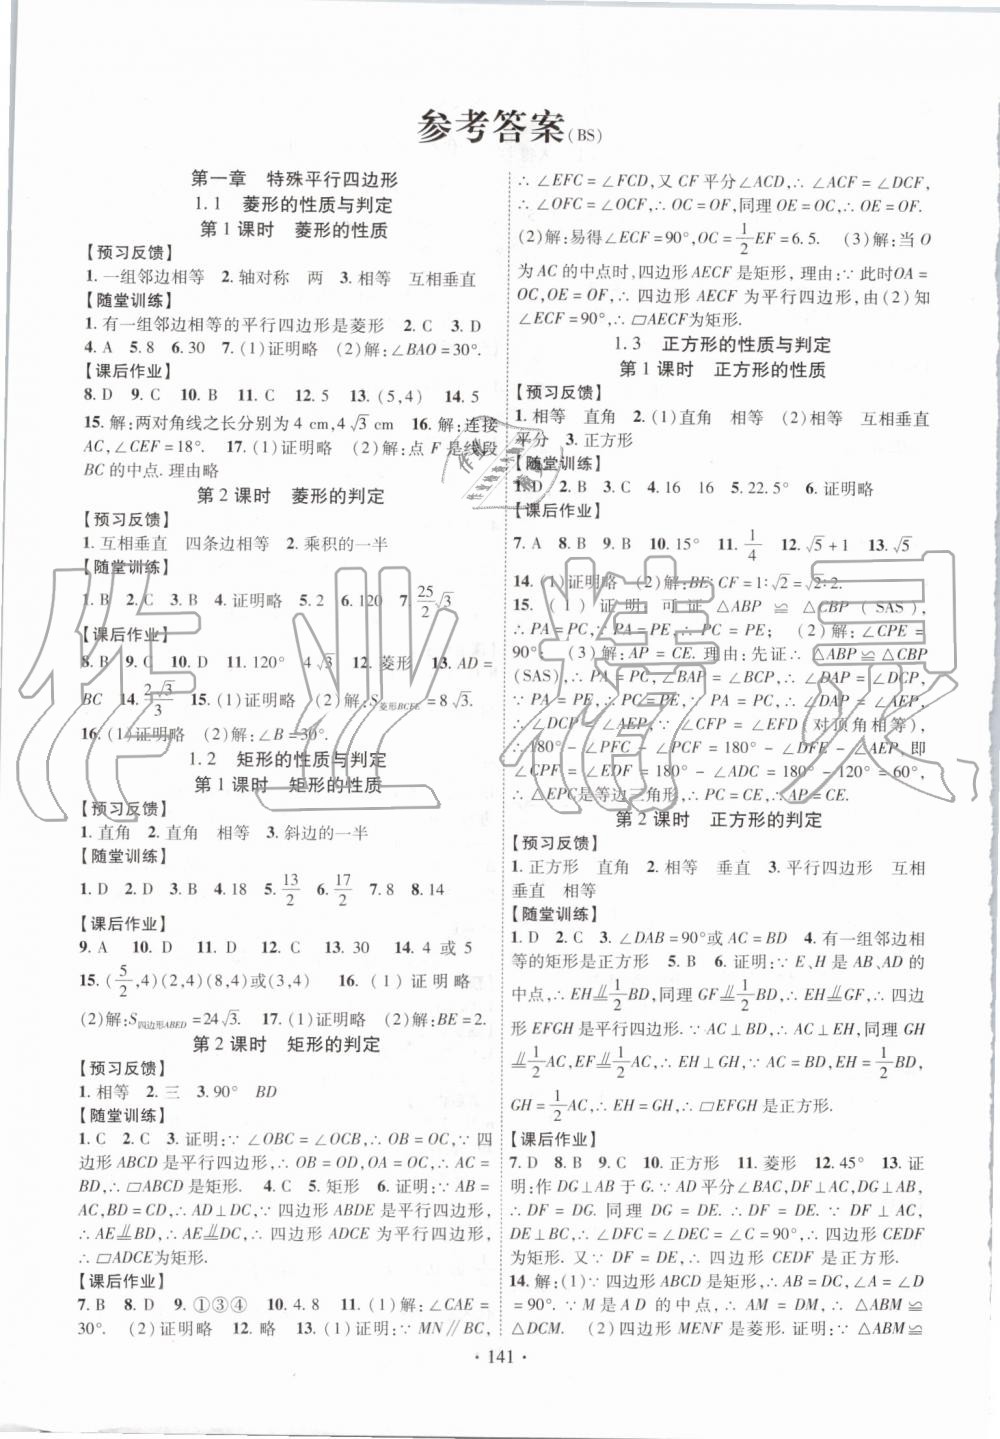 参考答案(BS)
第一章 特殊平行四边形
1.1 菱形的性质与判定
第1课时 菱形的性质
【预习反馈】
1.一组邻边相等 2.轴对称 两 3.相等 互相垂直
【随堂训练】
1.有一组邻边相等的平行四边形是菱形 2.C 3.D
4.A 5.8 6.30 7.(1)证明略 (2)解:∠BAO=30°.
【课后作业】
8.D 9.C 10.B 11.C 12.C 13.(5,4) 14.5
15.解:两对角线之长分别为4 cm,4√3 cm 16.解:连接
AC,∠CEF=18°. 17.(1)证明略 (2)解:点F是线段
BC的中点.理由略
第2课时 菱形的判定
【预习反馈】
1.互相垂直 四条边相等 2.乘积的一半
【随堂训练】
1.B 2.C 3.B 4.证明略 5.2 6.120 7.25/2√3
【课后作业】
8.B 9.C 10.D 11.120° 4√3 12.菱形 13.AD=
BC 14.2√3/3 15.(1)证明略 (2)解:S菱形BCFE=8√3.
16.(1)证明略 (2)解:∠B=30°.
1.2 矩形的性质与判定
第1课时 矩形的性质
【预习反馈】
1.直角 2.直角 相等 3.斜边的一半
【随堂训练】
1.D 2.D 3.B 4.18 5.13/2 6.17/2 7.8 8.14
【课后作业】
9.A 10.D 11.D 12.C 13.30 14.4或5
15.(5/2,4)(2,4)(8,4)或(3,4) 16.(1)证明略
(2)解:S四边形ABED=24√3. 17.(1)证明略 (2)解:BE=2.
第2课时 矩形的判定
【预习反馈】
1.相等 2.三 3.90° BD
【随堂训练】
1.C 2.C 3.证明:∵∠OBC=∠OCB,∴OB=OC,∵四
边形ABCD是平行四边形,∴OB=OD,OA=OC,∴AC=
BD,∴▱ABCD是矩形. 4.C 5.矩形 6.证明:∵AB=
AC,BD=CD,∴AD⊥DC,∵四边形ABDE是平行四边
形,∴AE⫽BD,∴AE⫽DC,∴四边形ADCE为平行四边形,
∴▱ADCE为矩形.
【课后作业】
7.B 8.D 9.①③④ 10.4.8 11.(1)解:∠CAE=
30°. (2)证明略 12.略 13.(1)证明:∵MN∥BC,
∴∠EFC=∠FCD,又CF平分∠ACD,∴∠ACF=∠DCF,
∴∠OFC=∠OCF,∴OC=OF,同理OE=OC,∴OE=OF.
(2)解:易得∠ECF=90°,OC=1/2EF=6.5. (3)解:当O
为AC的中点时,四边形AECF是矩形,理由:∵此时OA=
OC,OE=OF,∴四边形AECF为平行四边形,由(2)知
∠ECF=90°,∴▱AECF为矩形.
1.3 正方形的性质与判定
第1课时 正方形的性质
【预习反馈】
1.相等 直角 2.(1)直角 相等 (2)相等 互相垂直
平分 3.正方形
【随堂训练】
1.D 2.B 3.C 4.16 16 5.22.5° 6.证明略
【课后作业】
7.A 8.B 9.B 10.15° 11.1/4 12.√5+1 13.√5
14.(1)证明略 (2)解:BE∶CF=1∶√2=√2∶2.
15.(1)证明:可证△ABP≌△CBP(SAS),
∴PA=PC,∵PA=PE,∴PC=PE; (2)解:∠CPE=
90°; (3)解:AP=CE.理由:先证∴△ABP≌△CBP
(SAS),∴PA=PC,∠BAP=∠BCP,∴∠DAP=∠DCP,
∵PA=PE,∴PC=PE,∵PA=PC,∴∠DAP=∠AEP,
∴∠DCP=∠AEP,∵∠CFP=∠EFD(对顶角相等),
∴180°-∠PFC-∠PCF=180°-∠DFE-∠AEP,即
∠CPF=∠EDF=180°-∠ADC=180°-120°=60°,
∴∠EPC是等边三角形,∴PC=CE,∴AP=CE.
第2课时 正方形的判定
【预习反馈】
1.正方形 直角 2.相等 垂直 3.平行四边形 互相
垂直 相等
【随堂训练】
1.D 2.C 3.∠DAB=90°或AC=BD 4.有一组邻边相
等的矩形是正方形 5.B 6.证明:∵E、H是AB、AD的
中点,∴EH⫽1/2BD,同理GF⫽1/2BD,∴EH⫽GF,∴四边
形EFGH是平行四边形.∵AC⊥BD,∴EH⊥AC,同理GH
⫽1/2AC,EF⫽1/2AC,∴EH⊥GH,∵AC=BD,EH=1/2BD,
GH=1/2AC,∴EH=GH,∴▱EFGH是正方形.
【课后作业】
7.D 8.B 9.C 10.正方形 11.菱形 12.45° 13.证
明:作DG⊥AB于G.∵AD平分∠BAC,DF⊥AC,DG⊥AB,
∴DF=DG.同理DG=DE.∴DF=DE.∵DF⊥AC,
DE⊥BC,∴∠DFC=∠DEC=∠C=90°,∴四边形CEDF
为矩形.又∵DF=DE,∴四边形CEDF是正方形.
14.解:(1)∵四边形ABCD是矩形,∴AB=DC,∠A=∠D
=90°.∵M是AD的中点,∴AM=DM,∴△ABM≌
△DCM. (2)四边形MENF是菱形.证明:∵△ABM≌
• 141 •
作业精灵